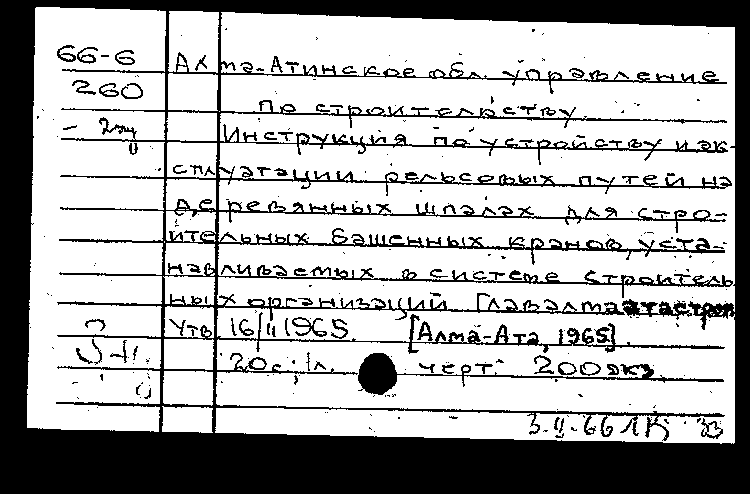 66-6
Алма-Атинское обл. управление
260
по строительству.
- 2экз
Инструкция по устройству и эк-
сплуатации рельсовых путей на
деревянных шпалах для стро-
ительных башенных кранов, уста-
навливаемых в системе строитель
ных организаций Главалмаатастроя
Утв. 16/II 1965. [Алма-Ата, 1965].
20с; 1л. черт. 200экз.
3-II-66 ЛК 33